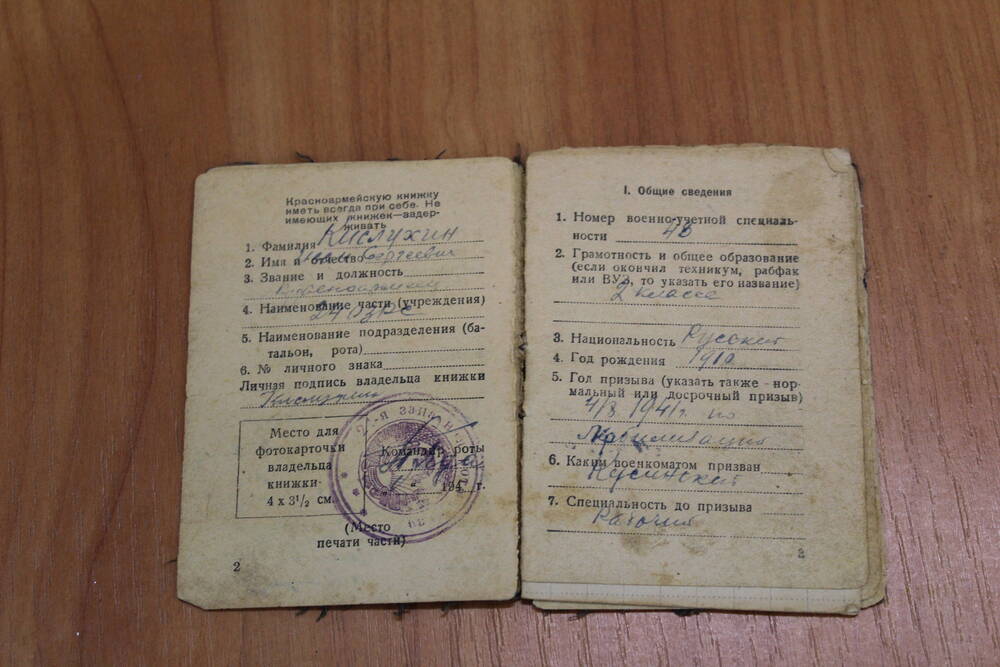 Красноармейскую книжку
иметь всегда при себе. Не
имеющих книжек—задер-
живать
1. Фамилия Кислухин
2. Имя и отчество Сергеевич
3. Звание и должность
Красноармеец
4. Наименование части (учреждения)
5. Наименование подразделения (ба-
тальон, рота)
6. № личного знака
Личная подпись владельца книжки
Кислухин
Место для
фотокарточки
владельца
книжки
4 x 3½ см.
Командир роты
194 г.
(Место
печати части)
2
I. Общие сведения
1. Номер военно-учетной специаль-
ности
2. Грамотность и общее образование
(если окончил техникум, рабфак
или ВУЗ, то указать его название)
2 класса
3. Национальность Русский
4. Год рождения
5. Год призыва (указать также - нор-
мальный или досрочный призыв)
1941 г. по
мобилизации
6. Каким военкоматом призван
Кусинский
7. Специальность до призыва
Рабочий
3